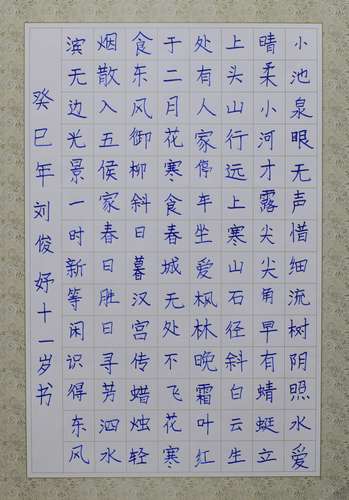 小池泉眼无声惜细流树阴照水爱
晴柔小河才露尖尖角早有蜻蜓立
上头山行远上寒山石径斜白云生
处有人家停车坐爱枫林晚霜叶红
于二月花寒食春城无处不飞花寒
食东风御柳斜日暮汉宫传蜡烛轻
烟散入五侯家春日胜日寻芳泗水
滨无边光景一时新等闲识得东风
癸巳年刘俊妤十一岁书